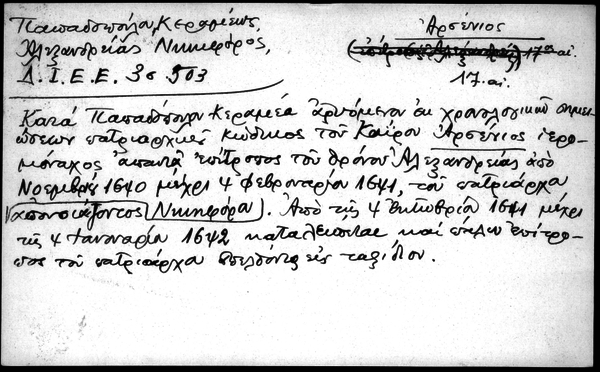 Παπαδοπούλου Κεραμέως,
Ἀλεξανδρείας Νικηφόρος,
Δ.Ι.Ε.Ε. 3ος 503
Ἀρσένιος
17ος αἰ.
17. αἰ.
Κατά Παπαδόπουλον Κεραμέα ἀρυόμενον ἐκ χρονολογικῶν σημει-
ώσεων πατριαρχικοῦ κώδικος τοῦ Καΐρου Ἀρσένιος ἱερο-
μόναχος ἀπαντᾷ ἐπίτροπος τοῦ θρόνου Ἀλεξανδρείας ἀπό
Νοεμβρίου 1640 μέχρι 4 Φεβρουαρίου 1641, τοῦ πατριάρχου
(ἀπουσιάζοντος Νικηφόρου). Ἀπό τῆς 4 Ὀκτωβρίου 1641 μέχρι
τῆς 4 Ἰανουαρίου 1642 καταλείπεται καί πάλιν ἐπίτρο-
πος τοῦ πατριάρχου ἀπελθόντος εἰς ταξίδιον.